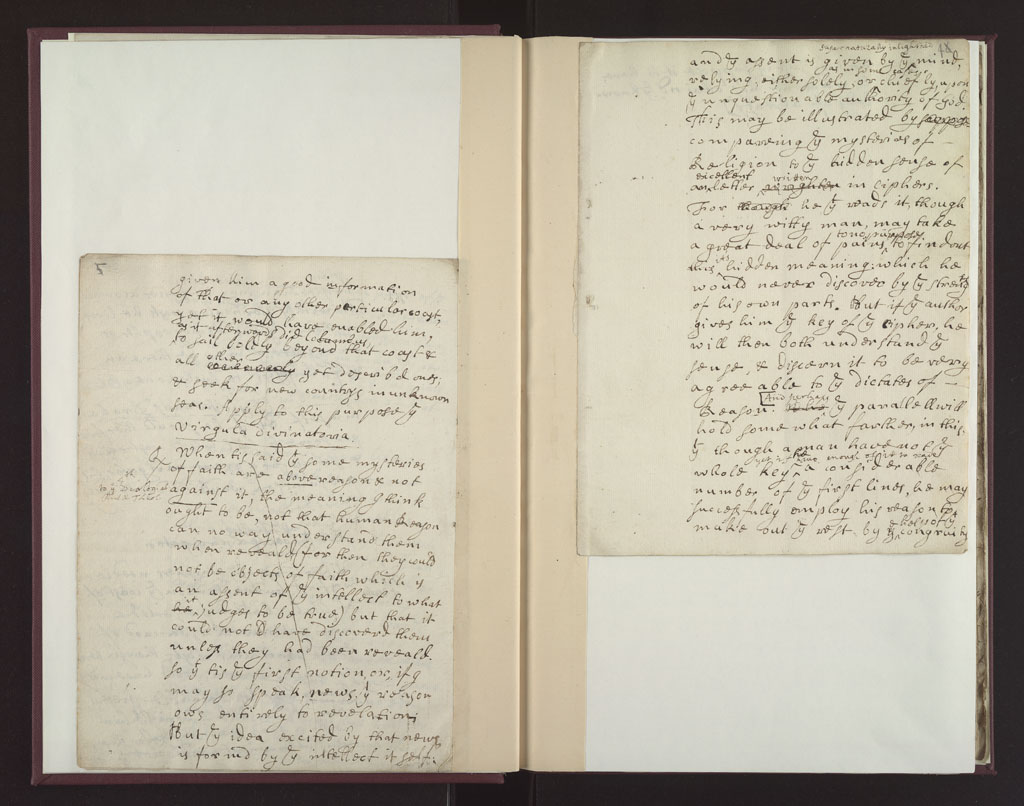 5
given him a good information
of that or any other perticular coast,
yet it would have enabled him,
as it afterwards did Columbus,
to sail boldly beyond that coast &
all other yet describ'd ones,
& seek for new countrys in unknown
seas. Apply to this purpose yͤ
Virgula Divinatoria.
When tis said yͭ some mysteries
of faith are above reason & not
against it, the meaning I think
ought to be, not that human Reason
can no way understand them
when reveald (for then they could
not be objects of faith which is
an assent of yͤ intellect to what
it judges to be true) but that it
could not have discoverd them
unless they had been reveald.
So yͭ tis yͤ first notion, or, if I
may so speak, news, yͭ reason
ows entirely to revelation;
But yͤ idea excited by that news
is form'd by yͤ intellect it self.
18
supernaturally inlightned
and yͤ assent is given by yͤ mind,
as in some cases
relying, either solely, or chiefly, upon
yͤ unquestionable authority of God.
This may be illustrated by
compareing yͤ mysteries of
Religion to yͤ hidden sense of
excellent written
an letter wrighten in ciphers.
For though he yͭ reads it, though
a very witty man, may take
to no purpose
a great deal of pains to find out
its hidden meaning; which he
would never discover by yͤ strenth
of his own parts. But if yͤ author
gives him yͤ key of yͤ cipher, he
will then both understand yͤ
sense, & discern it to be very
agreeable to yͤ dictates of
Reason. And perhaps yͤ parallell will
hold somewhat farther, in this,
yͭ though a man have not yͤ
whole key, a considerable
number of yͤ first lines, he may
succesfully employ his reason to
make out yͤ rest, by yͤ help of yͤ congruity